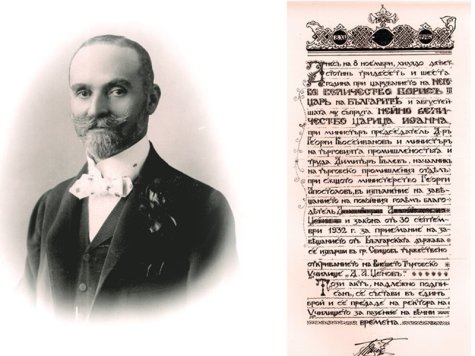 Днесь на 8 ноември, хилядо девет-
стотин тридесеть и шеста
година при царуването на Него-
во Величество Борисъ III
Царь на Българите и августей-
шата му съпруга Нейно Вели-
чество Царица Иоанна,
при министъръ председатель Д-ръ
Георги Кьосеивановъ и министъръ
на търговията промишлеността и
труда Димитъръ
на търговско промишления отдѣлъ
при същото министерство Георги
Апостоловъ, въ изпълнение на завѣ-
щанието на покойния голѣмъ благо-
дѣтель
Ценовъ и закона отъ 30 септем-
ври 1932 г. за приемание на за-
вѣщанието отъ Българската държава
се извърши въ гр. Свищовъ тържествено
откриването на Висшето Търговско
Училище „Д. А. Ценовъ".
Този актъ, надлежно подпи-
санъ, се състави въ единъ
брой и се предаде на ректора на
Училището за пазение на вечни
времена.